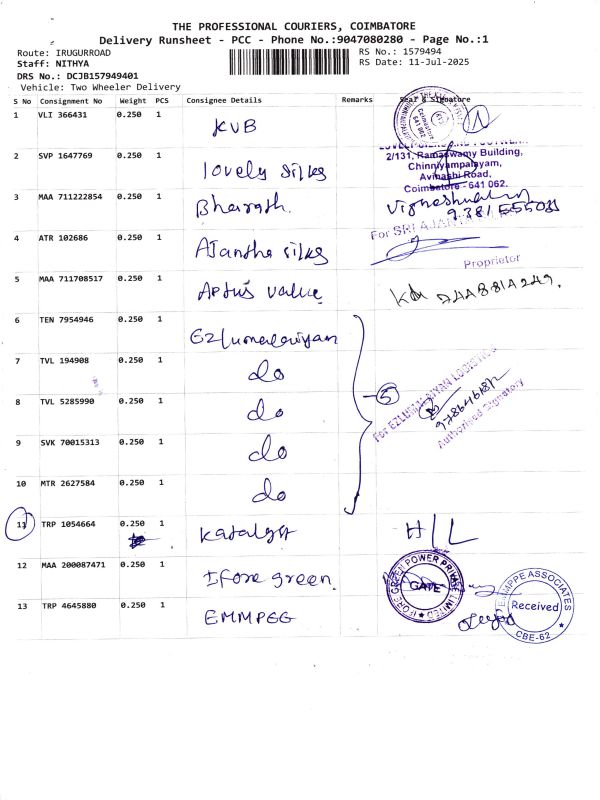 THE PROFESSIONAL COURIERS, COIMBATORE
Delivery Runsheet - PCC - Phone No.:9047080280 - Page No.:1
Route: IRUGURROAD
RS No.: 1579494
Staff: NITHYA
RS Date: 11-Jul-2025
DRS No.: DCJB157949401
Vehicle: Two Wheeler Delivery
S No Consignment No Weight PCS Consignee Details Remarks Seal & Signature
1 VLI 366431 0.250 1 KVB
Coimbatore
641 062
2 SVP 1647769 0.250 1 lovely silks
2/131, Ramaswamy Building,
Chinniyampalayam,
Avinashi Road,
Coimbatore - 641 062.
3 MAA 711222854 0.250 1 Bharath.
4 ATR 102686 0.250 1 AJantha silks
For SRI AJAN
Proprietor
5 MAA 711708517 0.250 1 Aptus value
6 TEN 7954946 0.250 1
7 TVL 194908 0.250 1 do
8 TVL 5285990 0.250 1 do
5
For EZLUMALAIYAN LOGISTICS
Authorised Signatory
9 SVK 70015313 0.250 1 do
10 MTR 2627584 0.250 1 do
11 TRP 1054664 0.250 1 Katalyst H/L
12 MAA 200087471 0.250 1 Ifore green
IFORE GREEN POWER PRIVATE LIMITED
GATE
13 TRP 4645880 0.250 1 EMMPEE
EMMPPE ASSOCIATES
Received
CBE-62